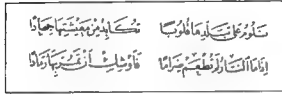 تلوم على تبلدها قلوبًا تكابد من معيشتها جهادًا
إذا ما النار لم تطعم ضرامًا فأوشك أن تمر بها رمادًا